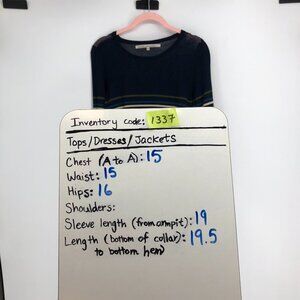 Inventory code: 1337
Tops/Dresses/Jackets
Chest (A to A): 15
Waist: 15
Hips: 16
Shoulders:
Sleeve length (from armpit): 19
Length (bottom of collar): 19.5
to bottom hem)